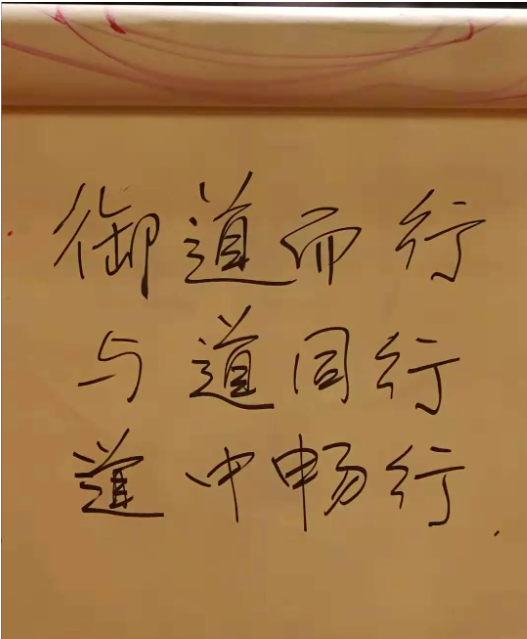 御道而行
与道同行
道中畅行.